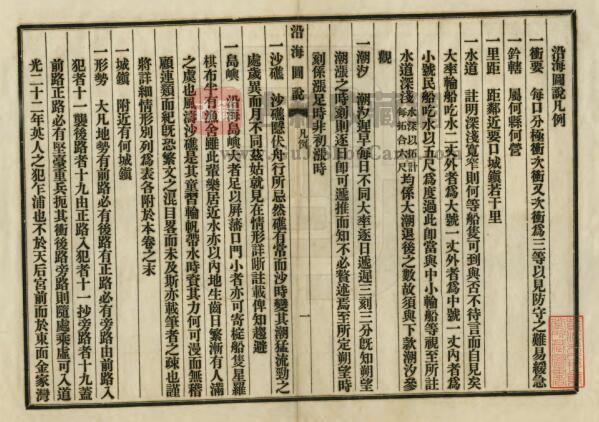 沿海圖說凡例
一衝要　每口分極衝次衝又次衝爲三等以見防守之難易緩急
一鈐轄　屬何縣何營
一里距　距鄰近要口城鎭若干里
一水道　註明淺深寬窄則何等船隻可到與否不待言而自見矣
大率輪船吃水二丈外者爲大號一丈外者爲中號一丈內者爲
小號民船吃水以五尺爲度過此卽當與中小輪船等視至所註
水道深淺水深以拓計每拓合六尺均係大潮退後之數故須與下款潮汐參
觀
一潮汐　潮汐遲早每日不同大率逐日遞遲三刻三分旣知朔望
潮漲之時刻則逐日卽可遞推而知不必贅述焉至所定朔望時
刻係漲足時非初漲時
沿海圖說　凡例　一
一沙礁　沙礁隱伏舟行所忌然礁有常而沙時變其潮猛流勁之
處歲異而月不同茲姑就見在情形詳晰註載俾知趨避
一島嶼　沿海島嶼大者足以屏藩口門小者亦可寄椗船隻星羅
棋布半住漁舍雖此輩樂居近水亦以內地生齒日繁漸有人滿
之虞也風濤沙礁是其童習輪帆帶水時資其力何可漫而無稽
顧連類而紀旣恐繁文之混目畧而未及斯亦載筆者之疎也謹
將詳細情形別列爲表各附於本卷之末
一城鎭　附近有何城鎭
一形勢　大凡地勢有前路必有後路有正路必有旁路由前路入
犯者十一襲後路者十九由正路入犯者十一抄旁路者十九蓋
前路正路必有堅臺重兵扼其衝後路旁路則隨處乘虛可入道
光二十二年英人之犯乍浦也不於天后宮前而於東面金家灣